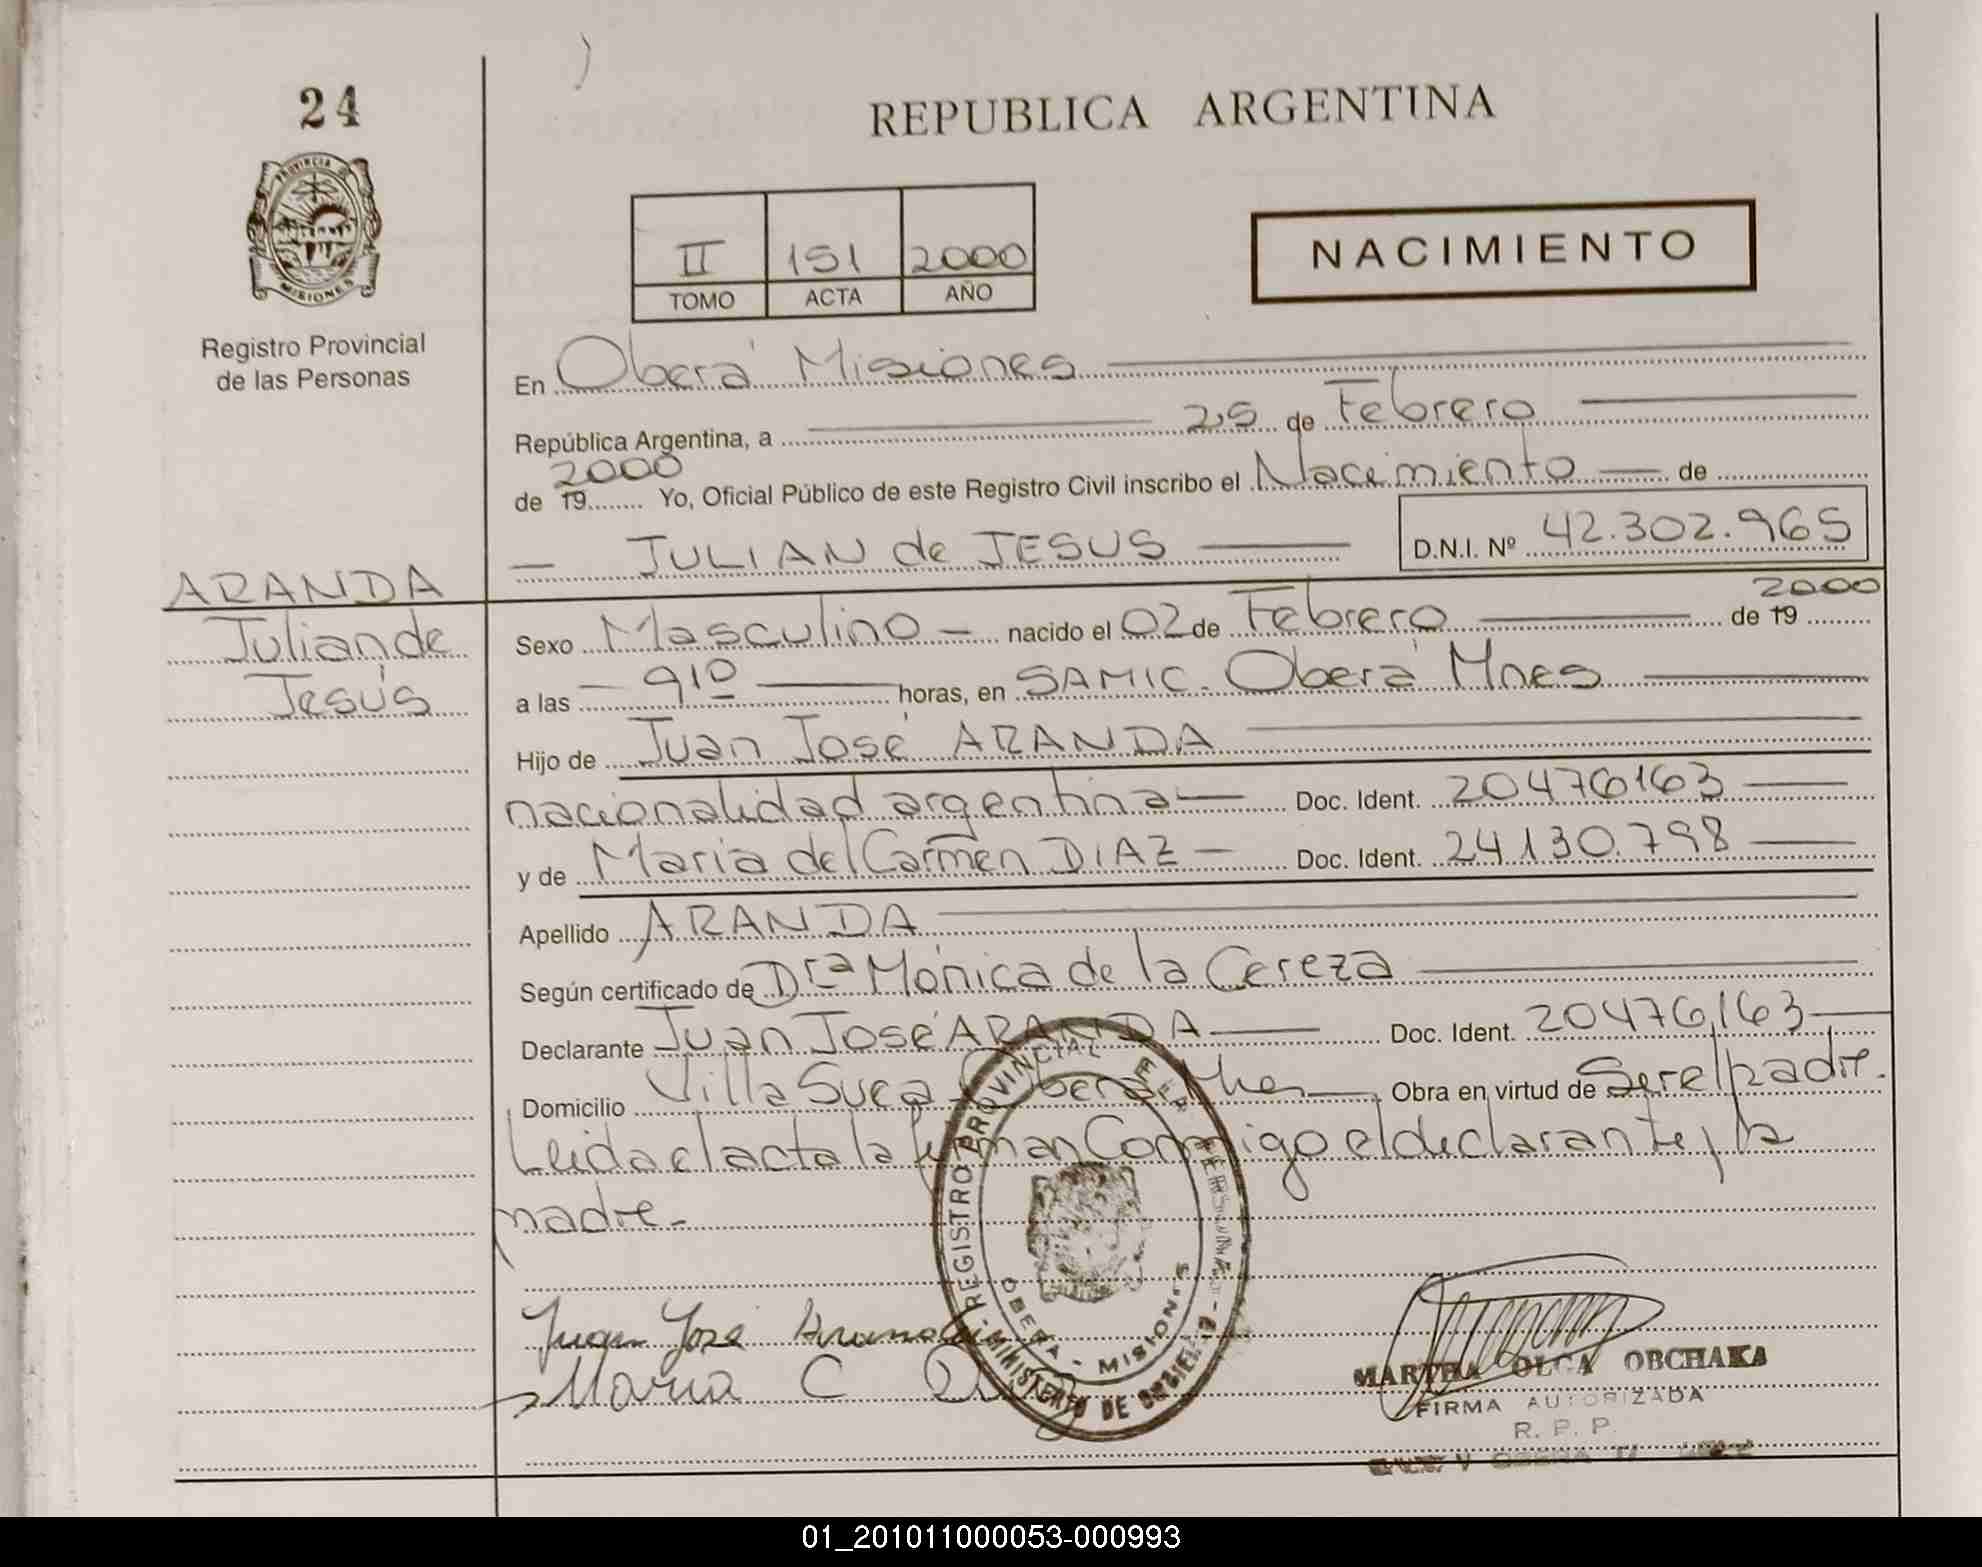 24
PROVINCIA
MISIONES
Registro Provincial
de las Personas
REPUBLICA ARGENTINA
II 151 2000
TOMO ACTA AÑO
NACIMIENTO
En Oberá Misiones
República Argentina, a 25 de Febrero
2000
de 19 Yo, Oficial Público de este Registro Civil inscribo el Nacimiento de
JULIAN de JESUS D.N.I. Nº 42.302.965
ARANDA
Julian de
Jesús
2000
Sexo Masculino - nacido el 02 de Febrero de 19
a las 910 horas, en SAMIC. Oberá Mnes
Hijo de Juan José ARANDA
nacionalidad argentina Doc. Ident. 20476163
y de Maria del Carmen DIAZ - Doc. Ident. 24.130.798
Apellido ARANDA
Según certificado de Dra Mónica de la Cereza
Declarante Juan José ARANDA Doc. Ident. 20476163
Domicilio Villa Suea Oberá Obra en virtud de Ser el padre.
Leida el acta la firman Conmigo el declarante y la
madre.-
REGISTRO PROVINCIAL
OBERA - MISIONES
MINISTERIO DE
Juan José Aranda
Maria C D
MARTHA OLGA OBCHAKA
FIRMA AUTORIZADA
R. P. P.
01_201011000053-000993